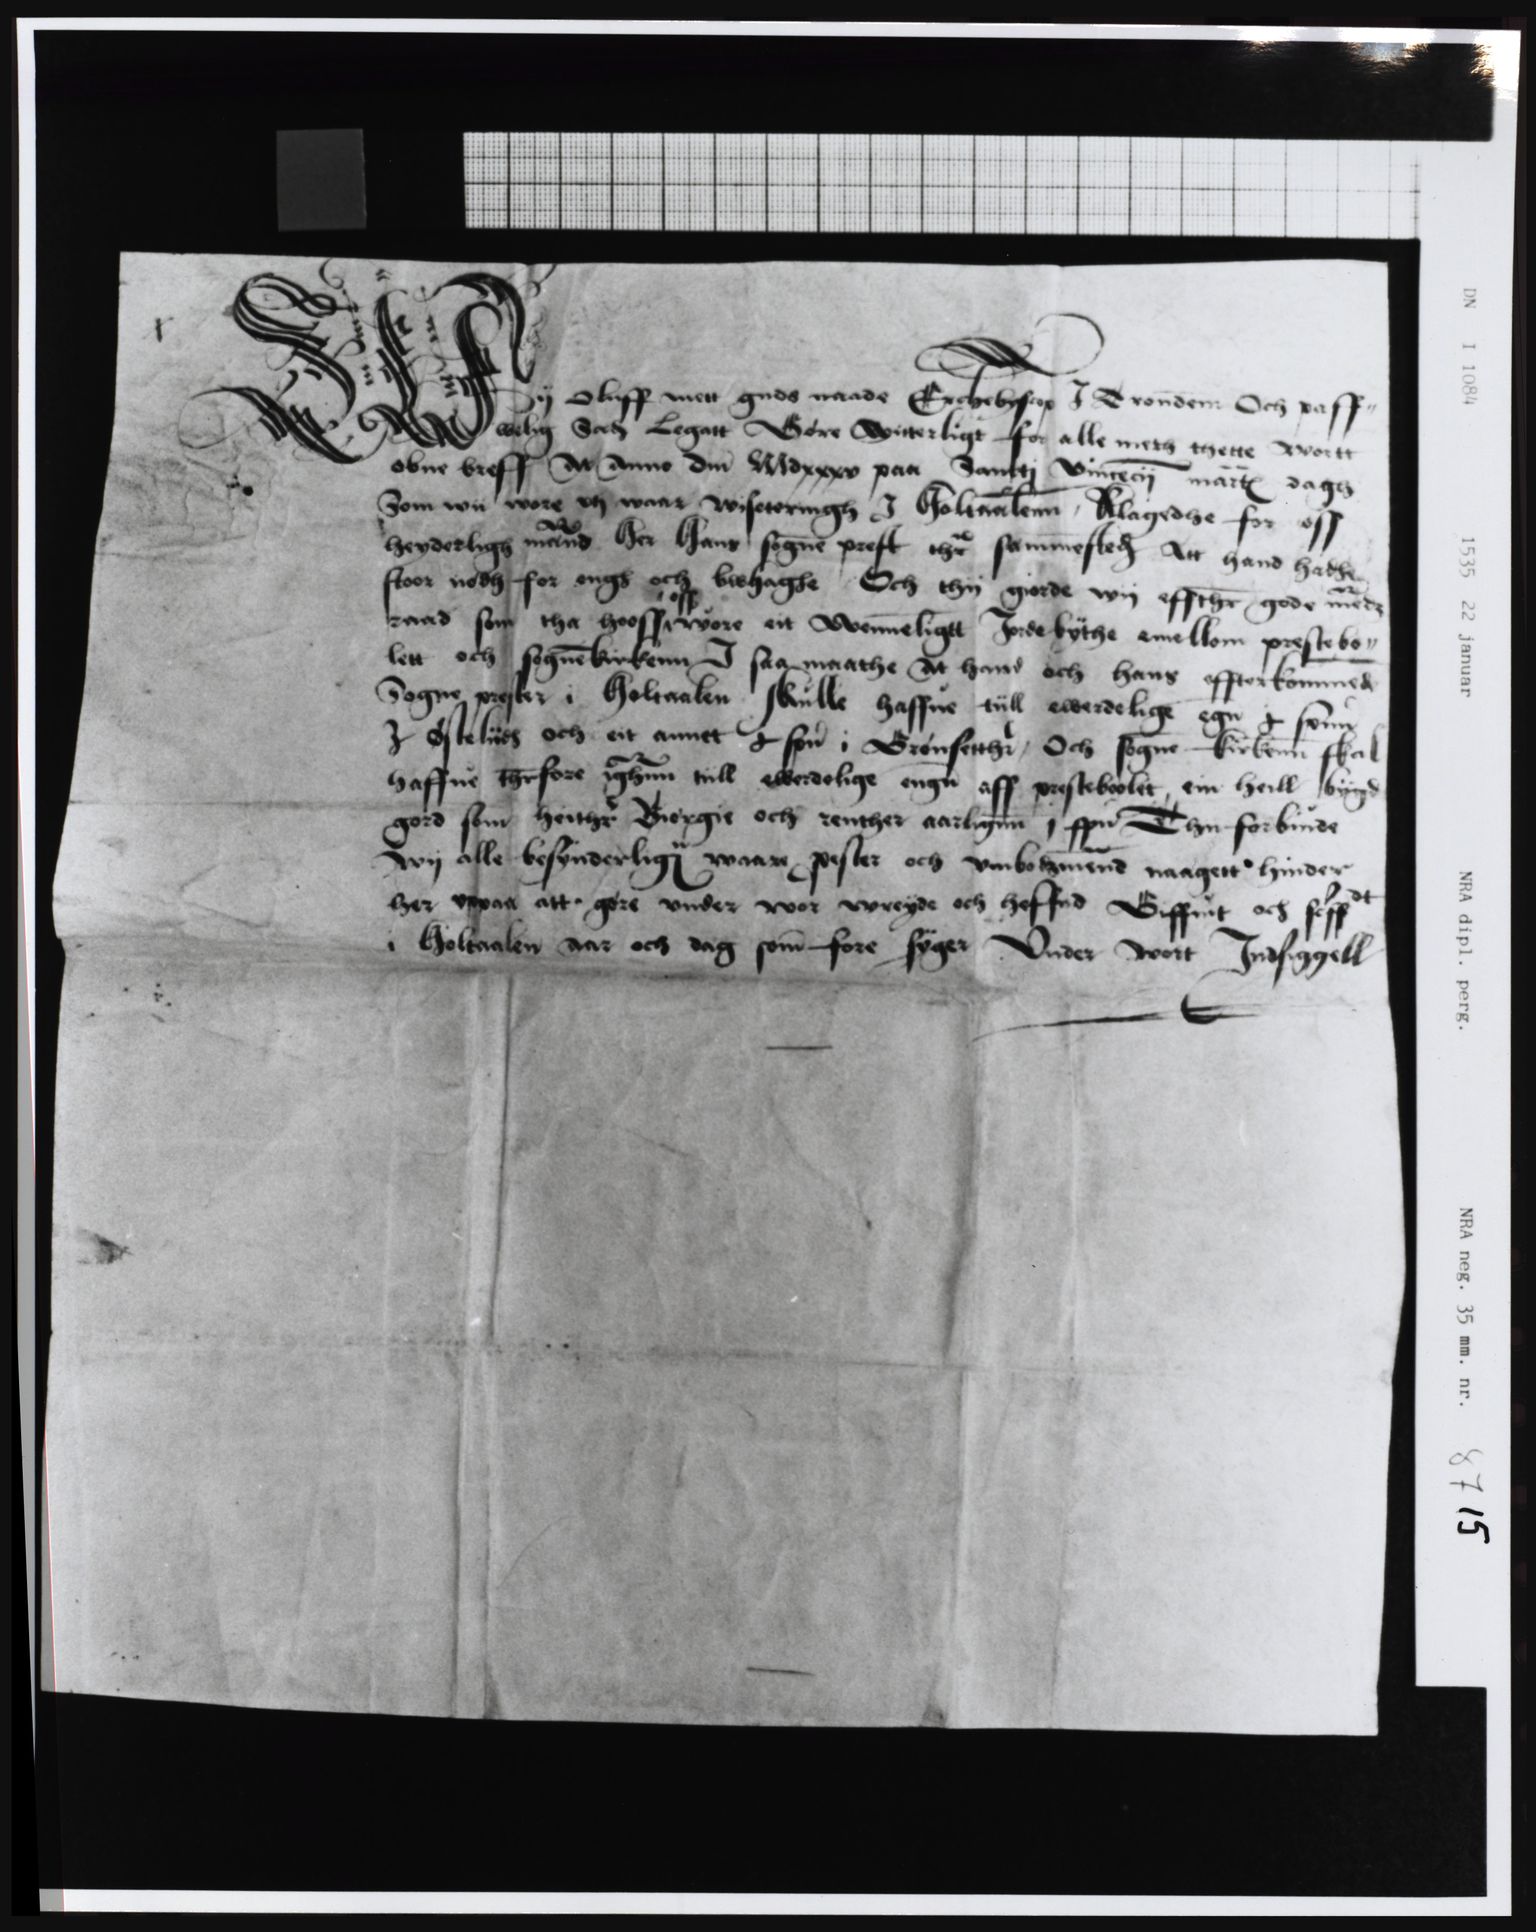 Wij Oluff mett guds naade Erchebiscop J Trondem Och paff„
welig Sedz Legatt Gøre witterligt for alle metz thette wortt
obne breff At Anno dni Mdxxxv paa Sancti Vincecij martr dagh
Som wii wore vtj waar wiseteringh J Holtaalenn, Klagedhe for oss
heyderligh mand Her Hans sogne prest thr sammestedz Att hand hadhe
stoor nødh for engh och bwhaghe Och thij giorde wij effther gode mendz
raad som tha hooss oss wore eit Wenneligtt Jordebythe emellom prestebo„
lett och sognekirkenn J saa maathe At hand och hans effterkommede
Sogne prester i Holtaalen skulle haffue till ewerdelige egn ɉ spn
J Østeliidh och eit annet ɉ spn i Grønsetthr, Och sogne kirkenn skal
haffue thrfore ighen till ewerdelige engn aff prestebolet, ein heill bygd
gord som heither Biørgie och renther aarligenn j spn Thii forbiude
wij alle besynderligh waare prester och vmbotzmend naagett hinder
her vppaa att gøre vnder wor wreyde och heffnd Giffuit och scriffdt
i Holtaalen aar och dag som fore syger Vnder wort Jndsiggell
DN I 1084 1535 22 januar NRA dipl. perg. NRA neg. 35 mm. nr. 8715